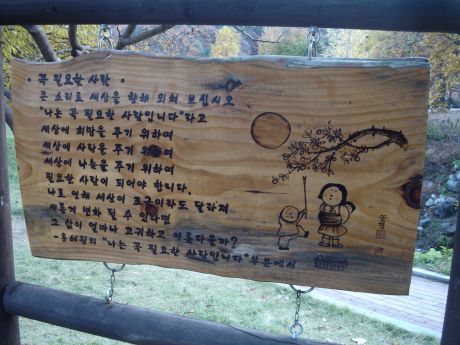 · 꼭 필요한 사람 ·
큰 소리로 세상을 향해 외쳐 보십시오
"나는 꼭 필요한 사람입니다"라고
세상에 희망을 주기 위하여
세상에 사랑을 주기 위하여
세상에 나눔을 주기 위하여
필요한 사람이 되어야 합니다.
나로 인해 세상이 조금이라도 달라져
새롭게 변화 될 수 있다면
그 삶이 얼마나 고귀하고 아름다울까?
-용혜원의 "나는 꼭 필요한 사람입니다"부분에서